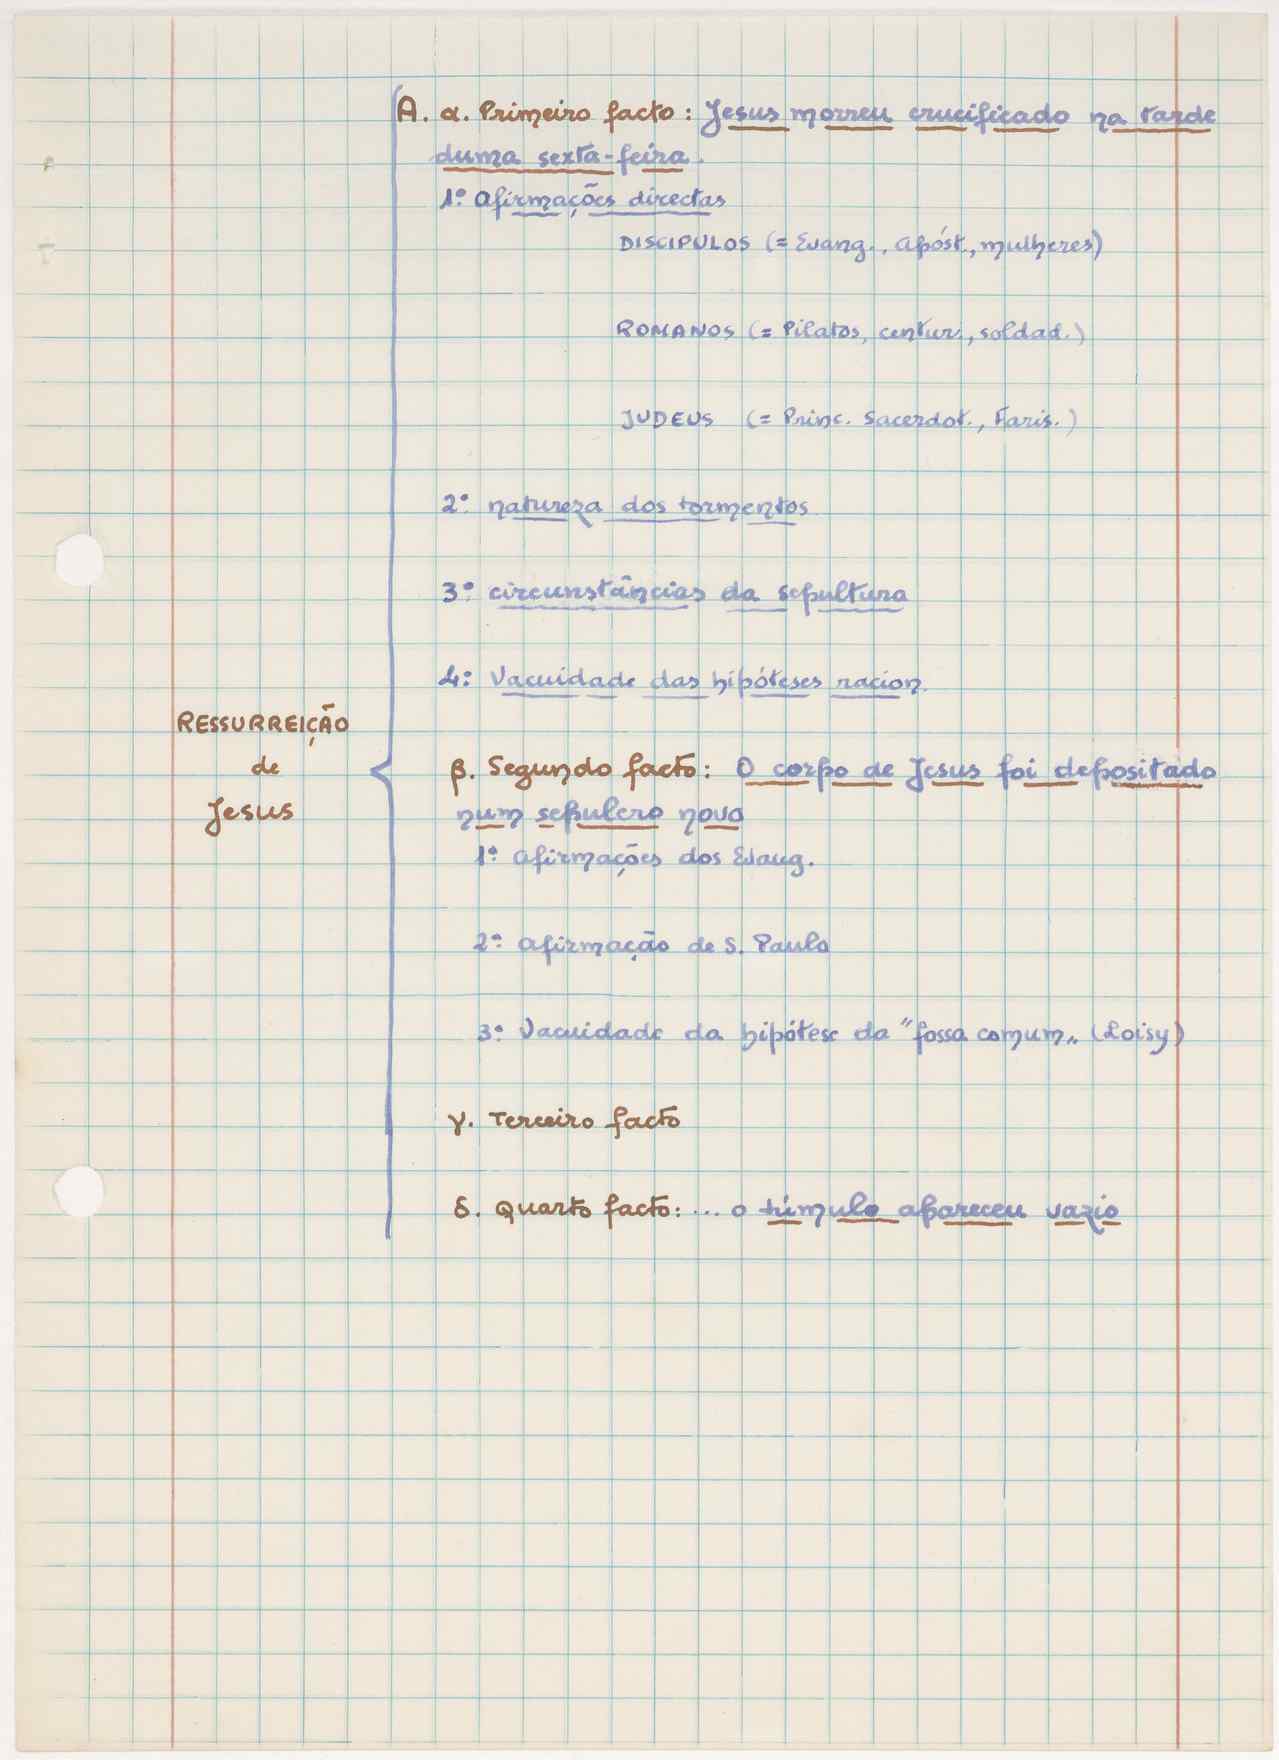 A. α. Primeiro facto: Jesus morreu crucificado na tarde
duma sexta-feira.
1º. Afirmações directas
DISCIPULOS (= Evang., Apóst., mulheres)
ROMANOS (= Pilatos, centur., soldad.)
JUDEUS (= Princ. Sacerdot., Faris.)
2º. natureza dos tormentos
3º. circunstâncias da sepultura
4º. Vacuidade das hipóteses racion.
RESSURREIÇÃO
de
Jesus
β. Segundo facto: O corpo de Jesus foi depositado
num sepulcro novo
1º. Afirmações dos Evang.
2º. Afirmação de S. Paulo
3º. Vacuidade da hipótese da "fossa comum" (Loisy)
γ. Terceiro facto
δ. Quarto facto: ... o túmulo apareceu vazio